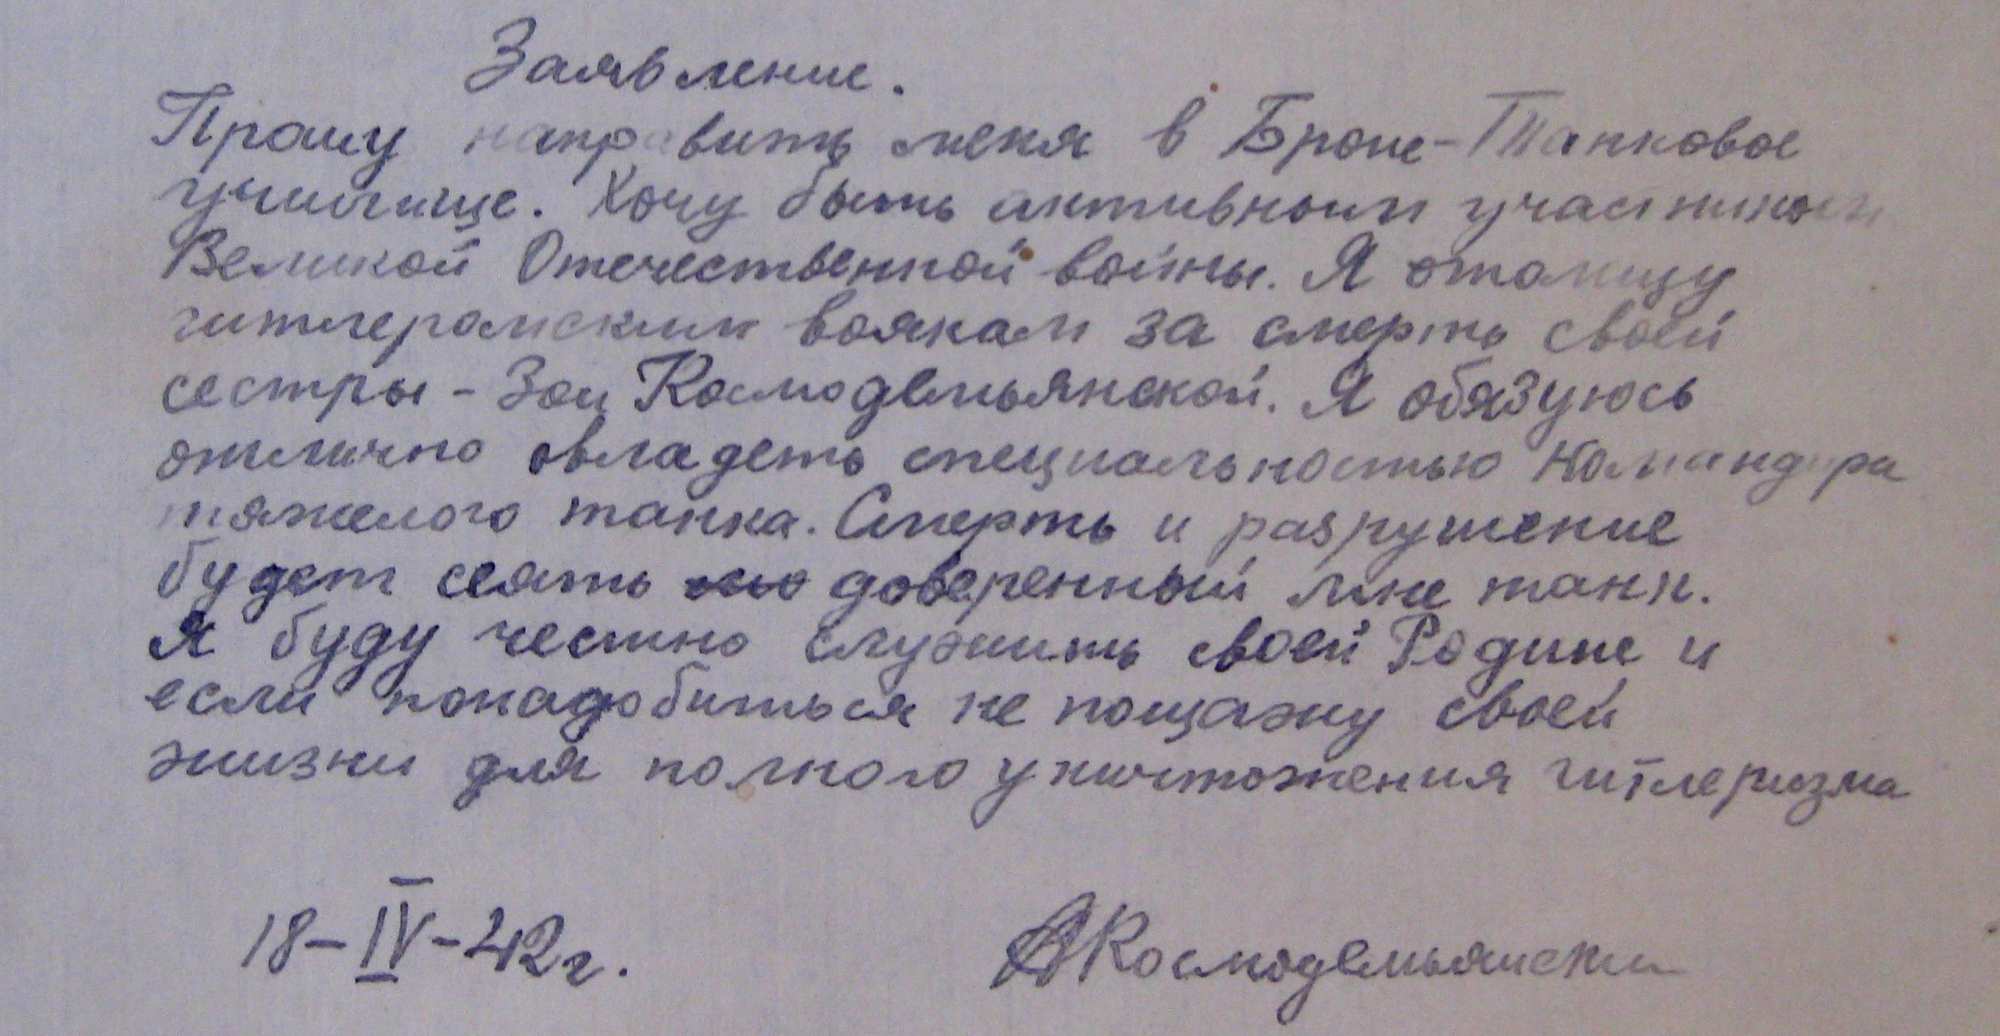 Заявление.
Прошу направить меня в Броне-Танковое
училище. Хочу быть активным участником
Великой Отечественной войны. Я отомщу
гитлеровским воякам за смерть своей
сестры - Зои Космодемьянской. Я обязуюсь
отлично овладеть специальностью командира
тяжелого танка. Смерть и разрушение
будет сеять доверенный мне танк.
Я буду честно служить своей Родине и
если понадобиться не пощажу своей
жизни для полного уничтожения гитлеризма
18-IV-42г.
АКосмодемьянский